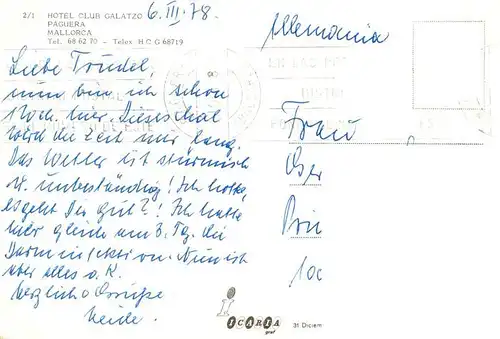 2/1 HOTEL CLUB GALATZO
PAGUERA
MALLORCA
Tel. 68 62 70 - Telex H C G 68719
6. III. 78.
Allemania
Liebe Trudel,
nun bin ich schon
1 Woch. hier. Dieses mal
wird die Zeit mir lang.
Das Wetter ist stürmisch
u. unbeständig! Ich hoffe,
es geht Dir gut?! Ich hatte
hier gleich am 3. Tg. die
Darminfektion. Nun ist
aber alles o. K.
Herzlich Grüße
Heide.
Frau
Prin
10c
ICARIA
graf
31 Diciem